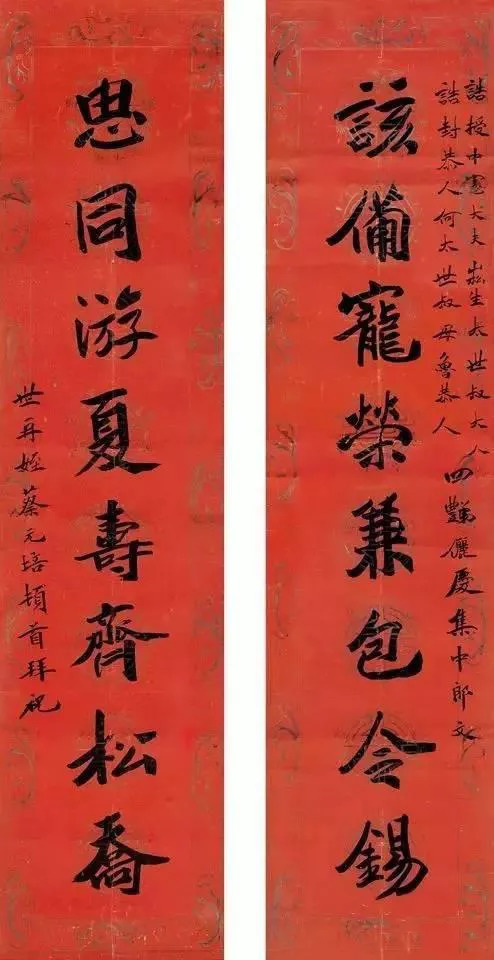 誥授中憲大夫崧生太世叔大人
誥封恭人何太世叔母魯恭人
四豑儷慶集中郎文
該備寵榮兼包令錫
思同游夏壽齊松喬
世再姪蔡元培頓首拜祝